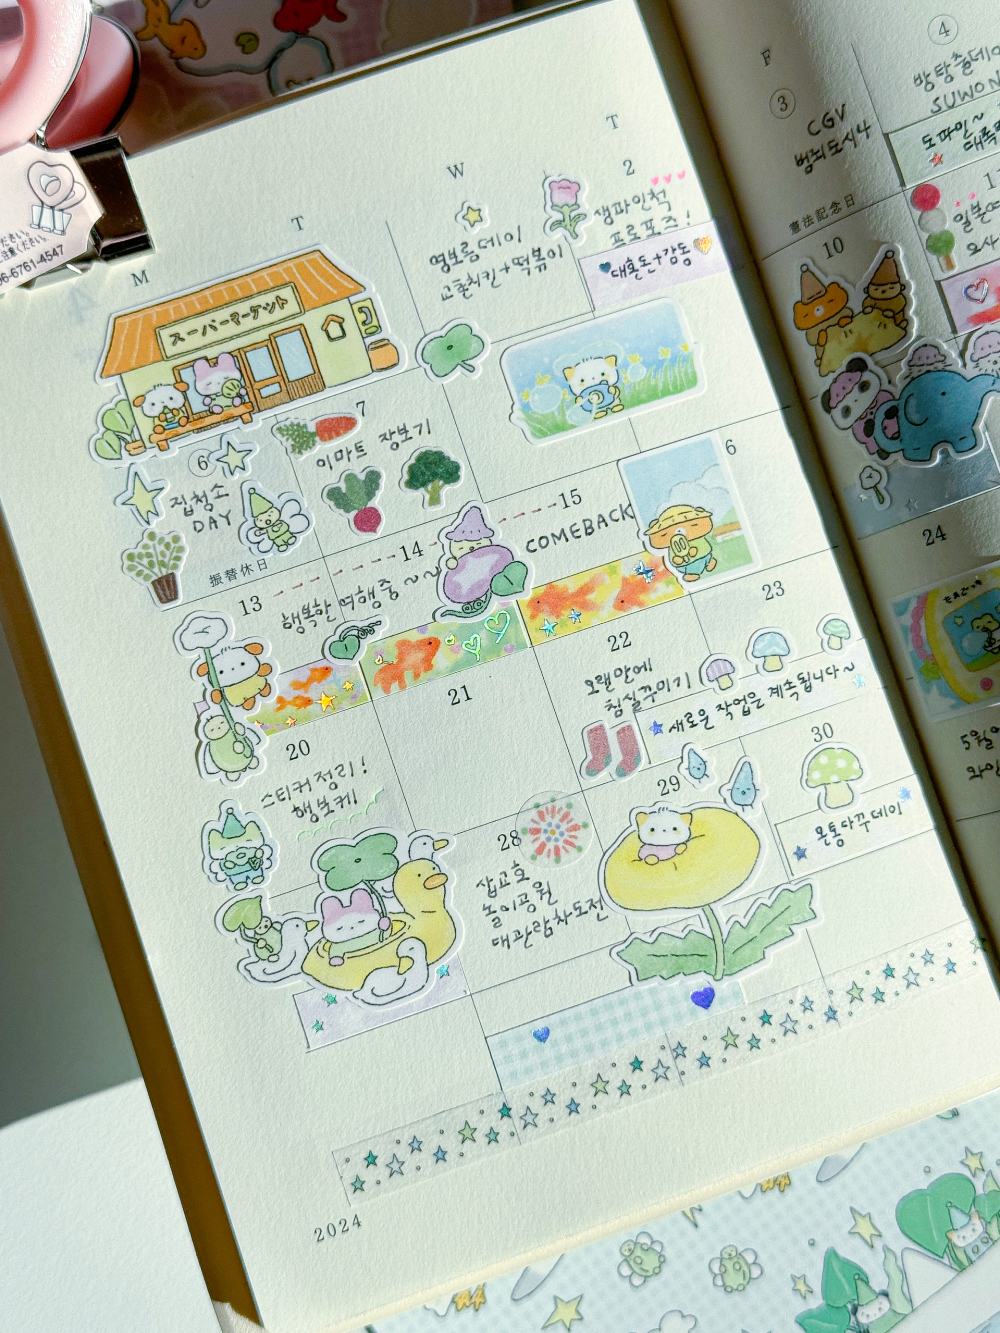 M
T
W
T
F
2
3
4
영보름데이
교촌치킨+떡볶이
프로포즈!
대혼돈+감동
CGV
범죄도시4
SUWON
도파민~
スーパーマーケット
憲法記念日
10
6
집청소
DAY
7
이마트 장보기
振替休日
13
14
행복한 여행중~~
15
COMEBACK
6
24
20
스티커정리!
행보케
21
22
오랜만에
침실꾸미기
23
새로운 작업은 계속됩니다~
28
삽교호
놀이공원
대관람차도전
29
30
몬통다꾸데이
5월
2024
ください。
6-6761-4547